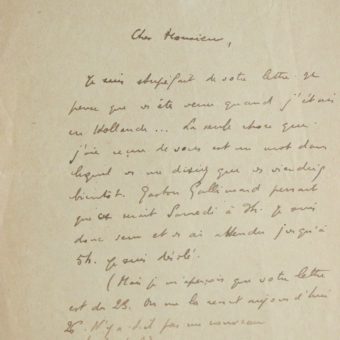 Cher Monsieur,
Je suis stupéfait de votre lettre. Je
pense que vs êtes venu quand j'étais
en Hollande... La seule chose que
j'aie reçue de vous est un mot dans
lequel vs me disiez que vs viendriez
bientôt. Gaston Gallimard pensait
que ce serait Samedi à 3h. Je suis
donc venu et vs ai attendu jusqu'à
5h. Je suis désolé.
(Mais je m'aperçois que votre lettre
est du 23. On me la remet aujourd'hui
26. N'y a-t-il pas un nouveau